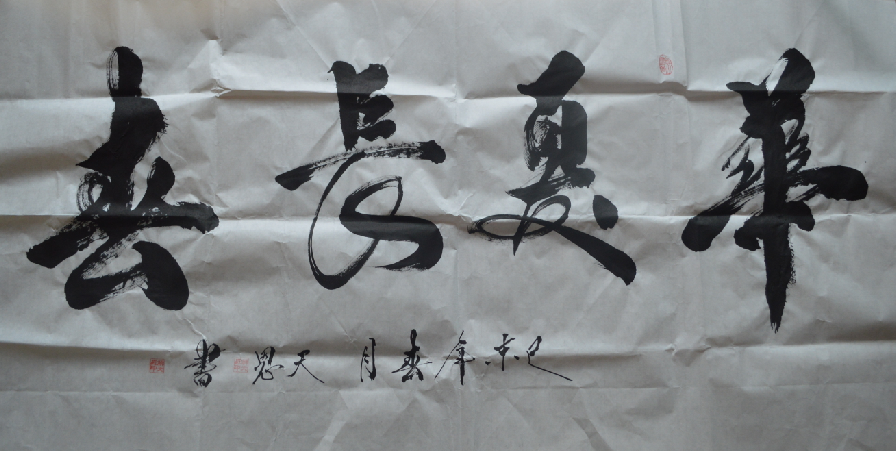 華夏長春
己未年春月 天思書